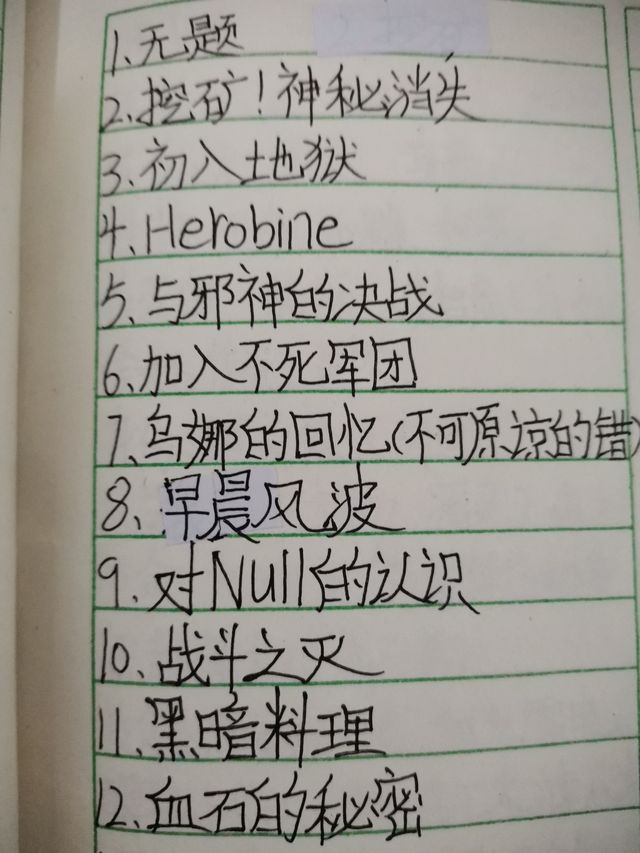 1、无题
2、挖矿！神秘消失
3、初入地狱
4、Herobine
5、与邪神的决战
6、加入不死军团
7、乌娜的回忆(不可原谅的错)
8、早晨风波
9、对Null的认识
10、战斗之灭
11、黑暗料理
12、血石的秘密